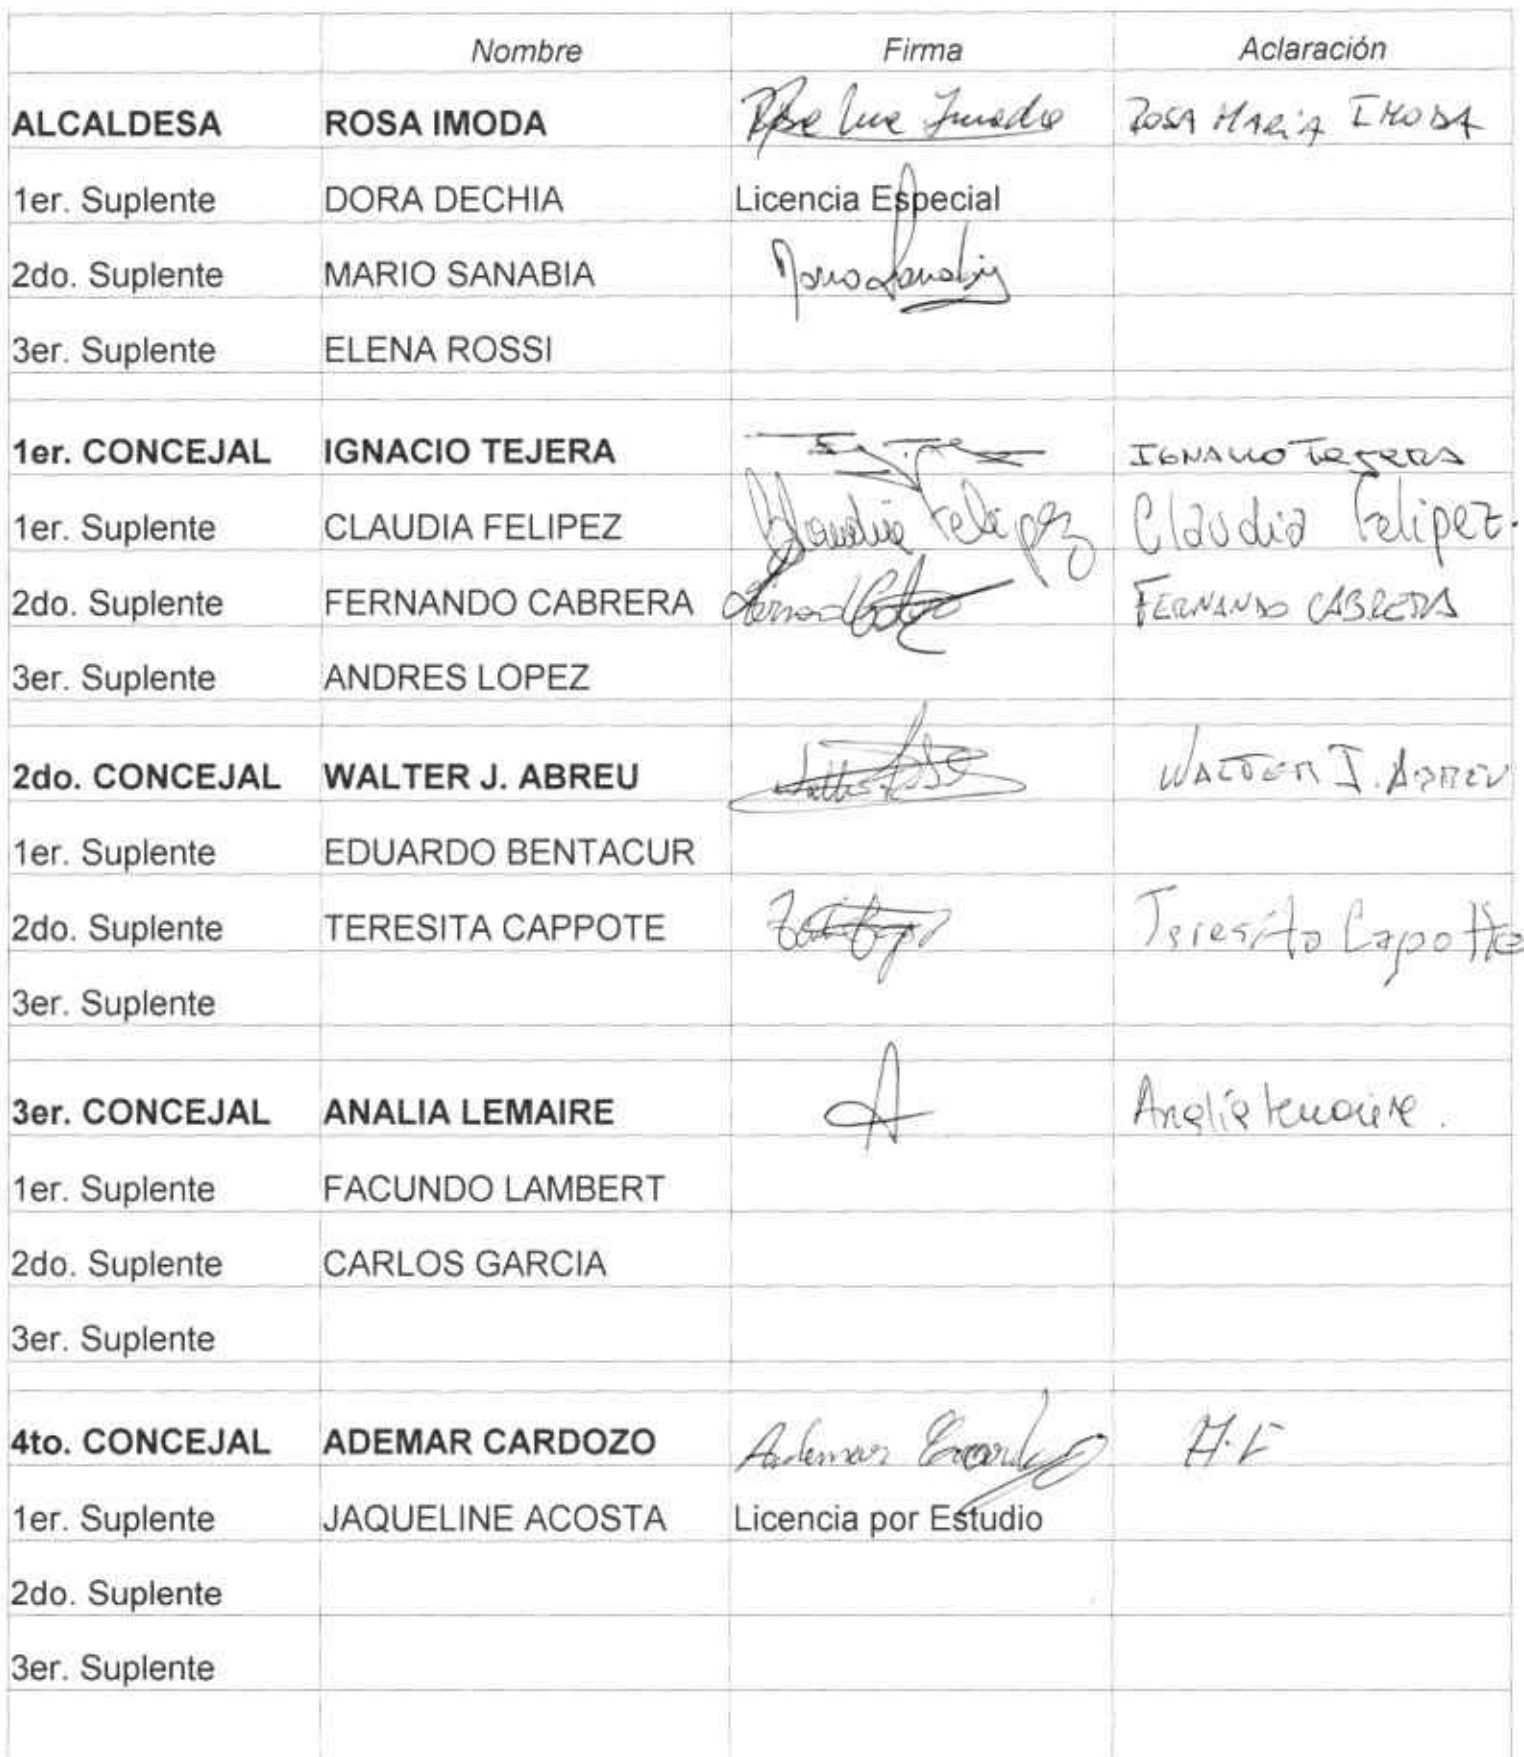 Nombre Firma Aclaración
ALCALDESA ROSA IMODA Rosa Imoda ROSA MARÍA IMODA
1er. Suplente DORA DECHIA Licencia Especial
2do. Suplente MARIO SANABIA Mario Sanabia
3er. Suplente ELENA ROSSI
1er. CONCEJAL IGNACIO TEJERA IGNACIO TEJERA
1er. Suplente CLAUDIA FELIPEZ Claudia Felipez Claudia Felipez.
2do. Suplente FERNANDO CABRERA FERNANDO CABRERA
3er. Suplente ANDRES LOPEZ
2do. CONCEJAL WALTER J. ABREU WALTER J. ABREU
1er. Suplente EDUARDO BENTACUR
2do. Suplente TERESITA CAPPOTE Teresita Capotte
3er. Suplente
3er. CONCEJAL ANALIA LEMAIRE A Analia Lemaire.
1er. Suplente FACUNDO LAMBERT
2do. Suplente CARLOS GARCIA
3er. Suplente
4to. CONCEJAL ADEMAR CARDOZO Ademar Cardozo
1er. Suplente JAQUELINE ACOSTA Licencia por Estudio
2do. Suplente
3er. Suplente